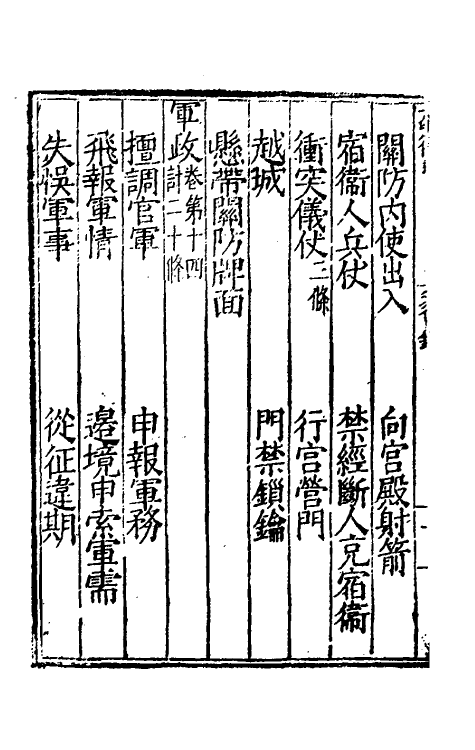 關防內使出入　向宮殿射箭
宿衞人兵仗　禁經斷人充宿衞
衝突儀仗二條　行宮營門
越城　門禁鎖鑰
懸帶關防牌面
軍政卷第十四計二十條
擅調官軍　申報軍務
飛報軍情　邊境申索軍需
失悞軍事　從征違期